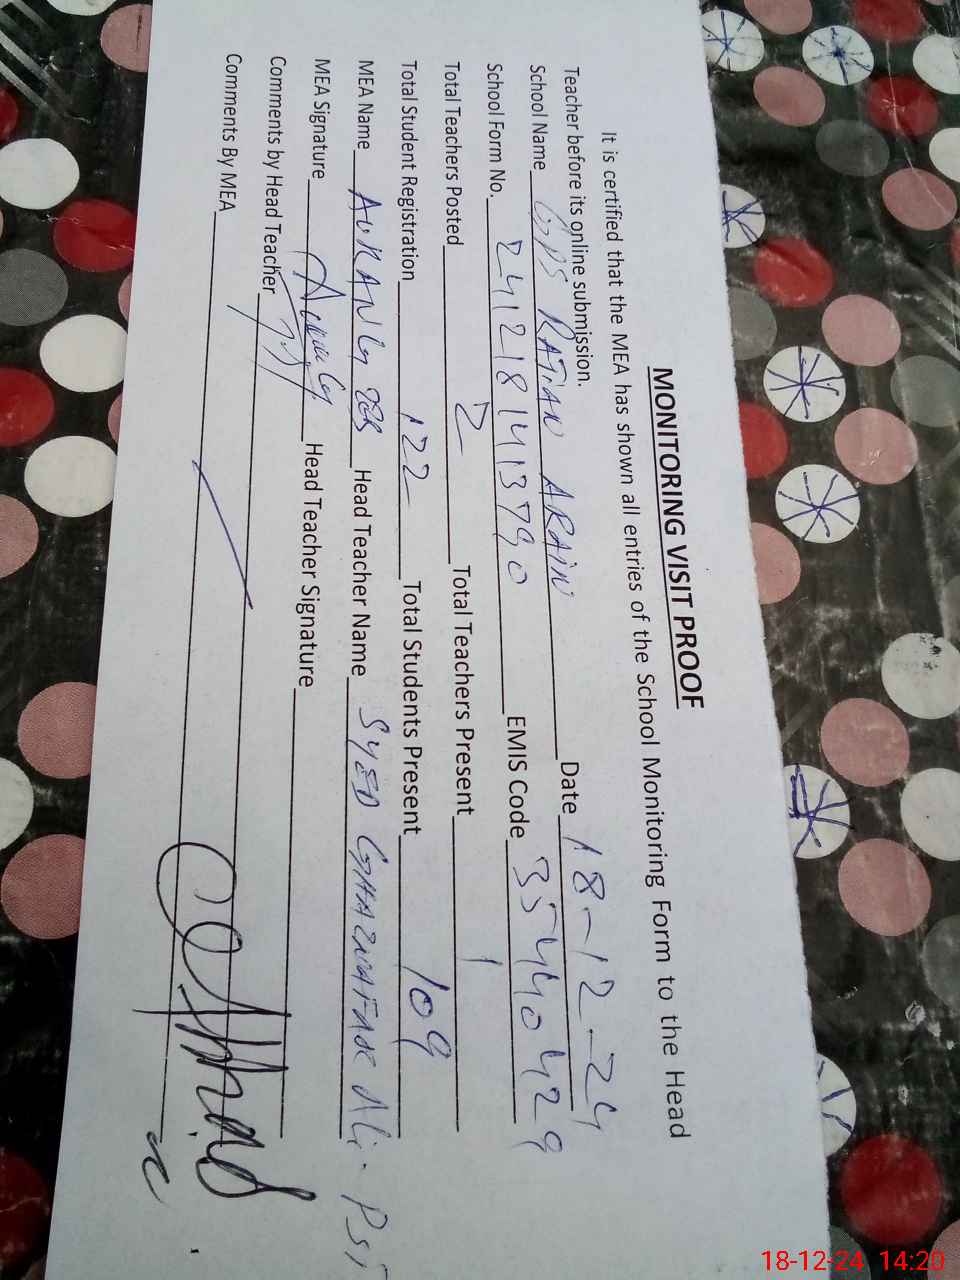 MONITORING VISIT PROOF
It is certified that the MEA has shown all entries of the School Monitoring Form to the Head
Teacher before its online submission.
School Name GPS RATIAN ARAIN Date 18-12-24
School Form No. 2412181413790 EMIS Code 35440429
Total Teachers Posted 2 Total Teachers Present 1
Total Student Registration 122 Total Students Present 109
MEA Name AURANG ZEB Head Teacher Name SYED GHAZNAFAR Ali. PST
MEA Signature Head Teacher Signature
Comments by Head Teacher
Comments By MEA
18-12-24 14:20